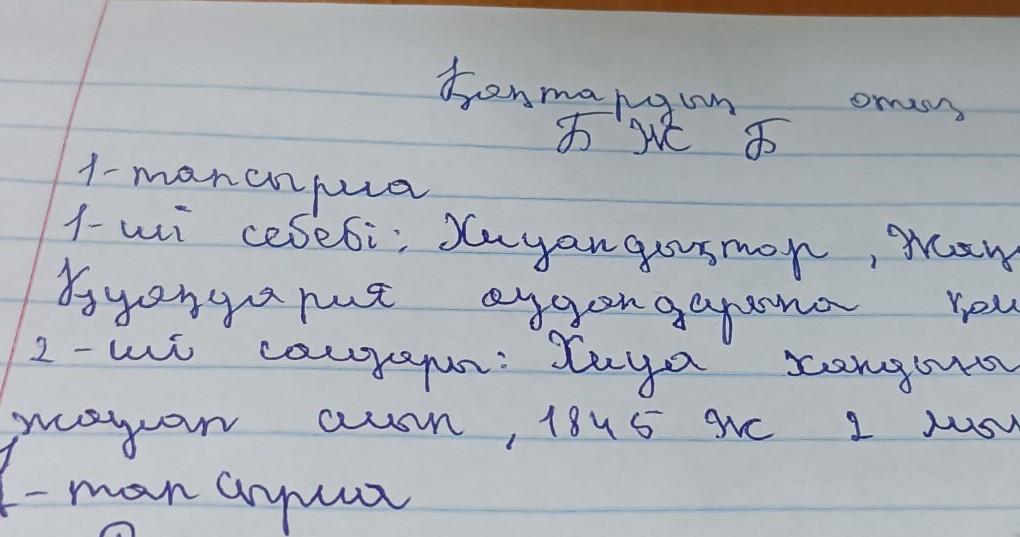 Қаңтардың отыз
БЖБ
1-тапсырма
1-ші себебі: Хиуандықтар, Жаң
Қуаңдария аудандарына қол
2-ші салдары: Хиуа хандығы
жаулап алып, 1845 ж 2 мы
-тапсырма